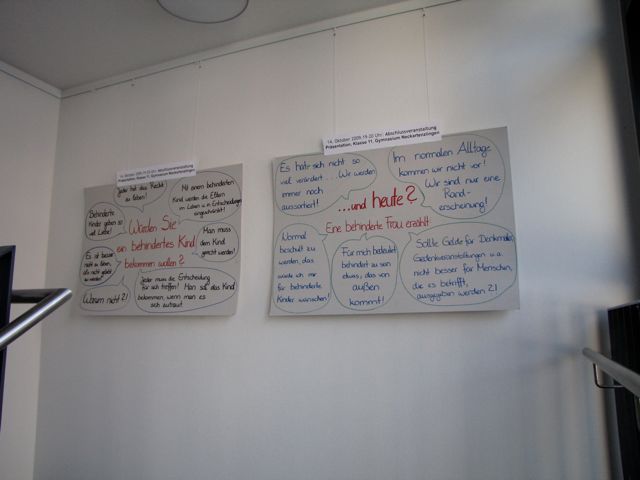 14. Oktober 2009, 19-20 Uhr: Abschlussveranstaltung
Präsentation, Klasse 11, Gymnasium Neckartenzlingen
Jeder hat das Recht
zu leben!
Mit einem behinderten
Kind werden die Eltern
im Leben u. in Entscheidungen
eingeschränkt!
Behinderte
Kinder geben so
viel Liebe!
Würden Sie
ein behindertes Kind
bekommen wollen?
Man muss
dem Kind
gerecht werden!
Es ist besser
nicht zu leben,
als nicht geliebt
zu werden!
Warum nicht?!
Jeder muss die Entscheidung
für sich treffen! Man soll das Kind
bekommen, wenn man es
sich zutraut!
14. Oktober 2009, 19-20 Uhr: Abschlussveranstaltung
Präsentation, Klasse 11, Gymnasium Neckartenzlingen
Es hat sich nicht so
viel verändert... Wir werden
immer noch
aussortiert!
Im normalen Alltag
kommen wir nicht vor!
Wir sind nur eine
Rand-
erscheinung!
...und heute?
Eine behinderte Frau erzählt:
Normal
beschult zu
werden, das
würde ich mir
für behinderte
Kinder wünschen!
Für mich bedeutet
behindert zu sein
etwas, das von
außen
kommt!
Sollte Gelder für Denkmäler,
Gedenkveranstaltungen u.a.
nicht besser für Menschen,
die es betrifft,
ausgegeben werden?!